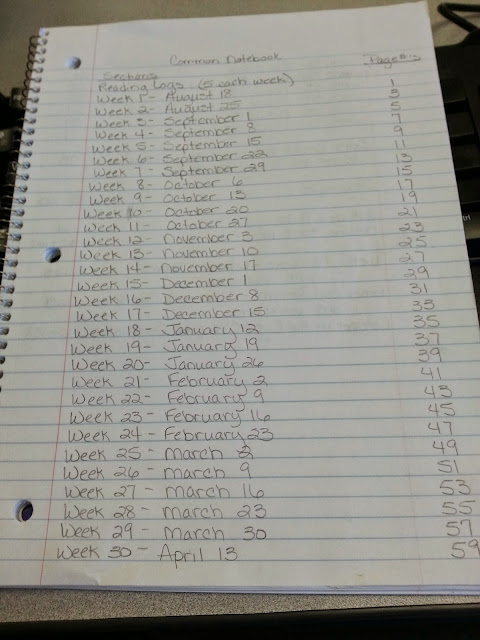 Common Notebook
Sections Page #'s
Reading Logs (5 each week)
Week 1 - August 18 1
Week 2 - August 25 3
Week 3 - September 1 5
Week 4 - September 8 7
Week 5 - September 15 9
Week 6 - September 22 11
Week 7 - September 29 13
Week 8 - October 6 15
Week 9 - October 13 17
Week 10 - October 20 19
Week 11 - October 27 21
Week 12 - November 3 23
Week 13 - November 10 25
Week 14 - November 17 27
Week 15 - December 1 29
Week 16 - December 8 31
Week 17 - December 15 33
Week 18 - January 12 35
Week 19 - January 19 37
Week 20 - January 26 39
Week 21 - February 2 41
Week 22 - February 9 43
Week 23 - February 16 45
Week 24 - February 23 47
Week 25 - March 2 49
Week 26 - March 9 51
Week 27 - March 16 53
Week 28 - March 23 55
Week 29 - March 30 57
Week 30 - April 13 59